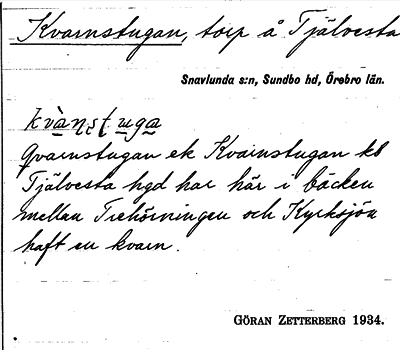 Kvarnstugan, torp å Tjälvesta
Snavlunda s:n, Sundbo hd, Örebro län.
kvànstuga
Qvarnstugan ek Kvarnstugan kb
Tjälvesta hgd har här i bäcken
mellan Trehörningen och Kyrksjön
haft en kvarn.
GÖRAN ZETTERBERG 1934.